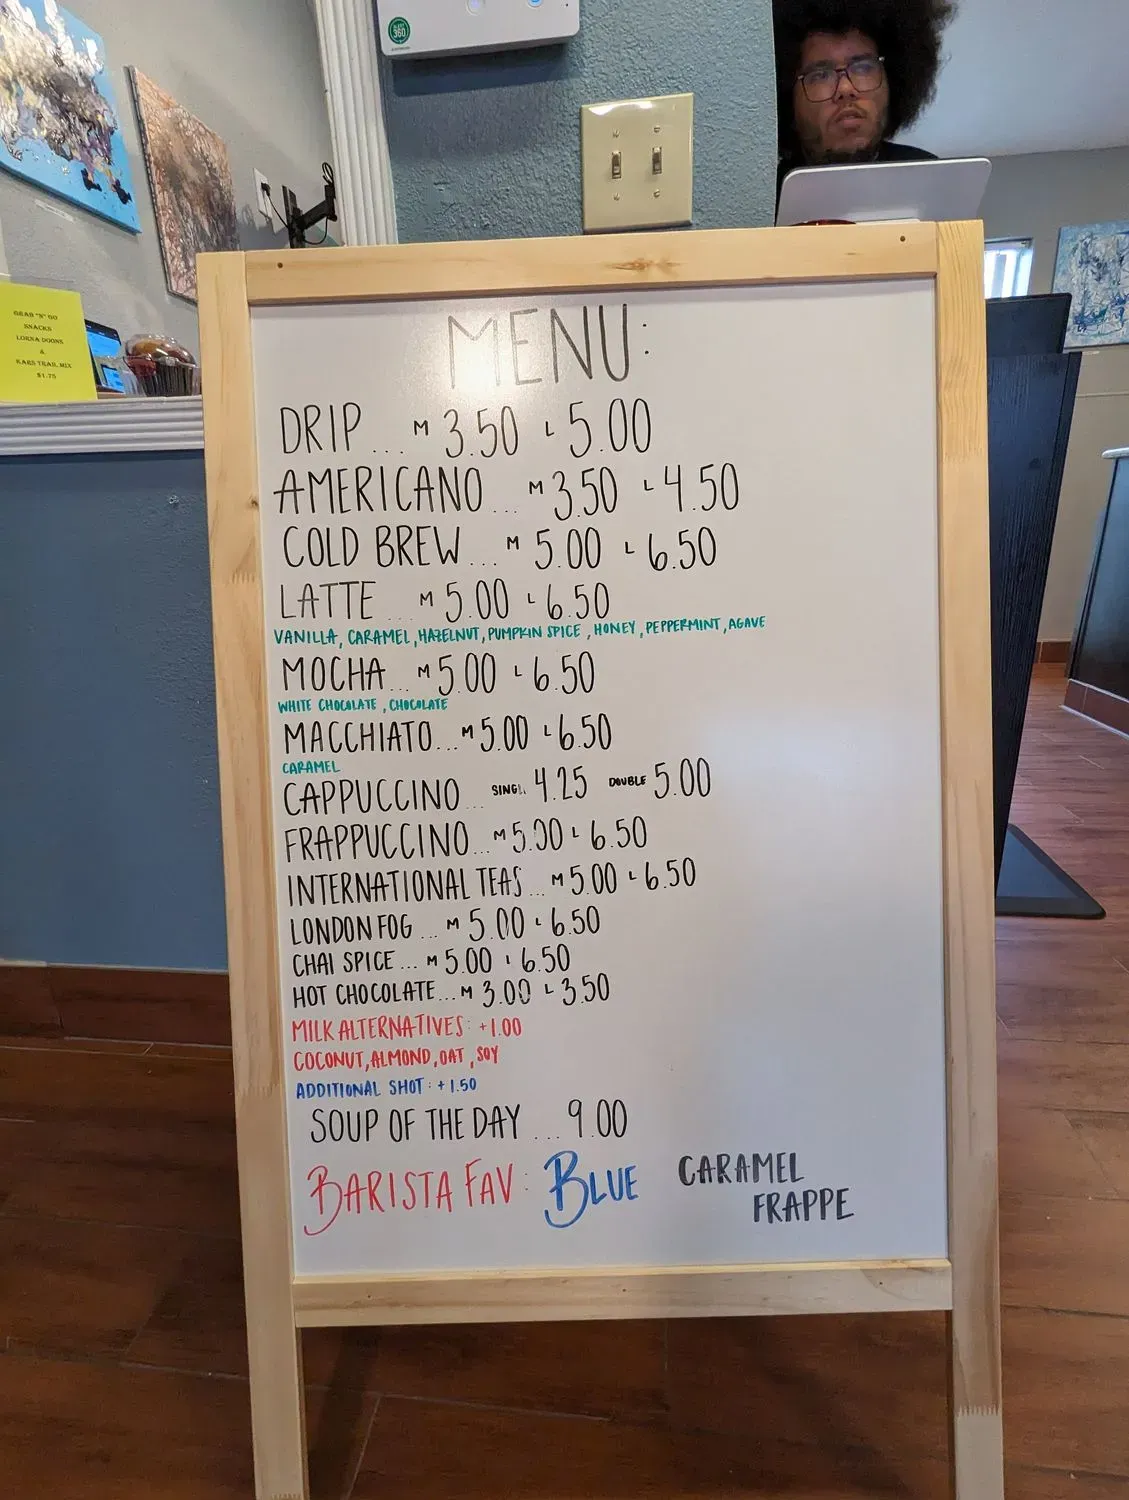 ALERT 360
GRAB "N" GO
SNACKS
LORNA DOONS
&
KARS TRAIL MIX
$1.75
MENU:
DRIP... M 3.50 L 5.00
AMERICANO... M 3.50 L 4.50
COLD BREW... M 5.00 L 6.50
LATTE ... M 5.00 L 6.50
VANILLA, CARAMEL, HAZELNUT, PUMPKIN SPICE, HONEY, PEPPERMINT, AGAVE
MOCHA... M 5.00 L 6.50
WHITE CHOCOLATE, CHOCOLATE
MACCHIATO... M 5.00 L 6.50
CARAMEL
CAPPUCCINO... SINGL 4.25 DOUBLE 5.00
FRAPPUCCINO... M 5.00 L 6.50
INTERNATIONAL TEAS... M 5.00 L 6.50
LONDON FOG ... M 5.00 L 6.50
CHAI SPICE... M 5.00 L 6.50
HOT CHOCOLATE... M 3.00 L 3.50
MILK ALTERNATIVES: +1.00
COCONUT, ALMOND, OAT, SOY
ADDITIONAL SHOT: +1.50
SOUP OF THE DAY ... 9.00
BARISTA FAV: BLUE CARAMEL
FRAPPE